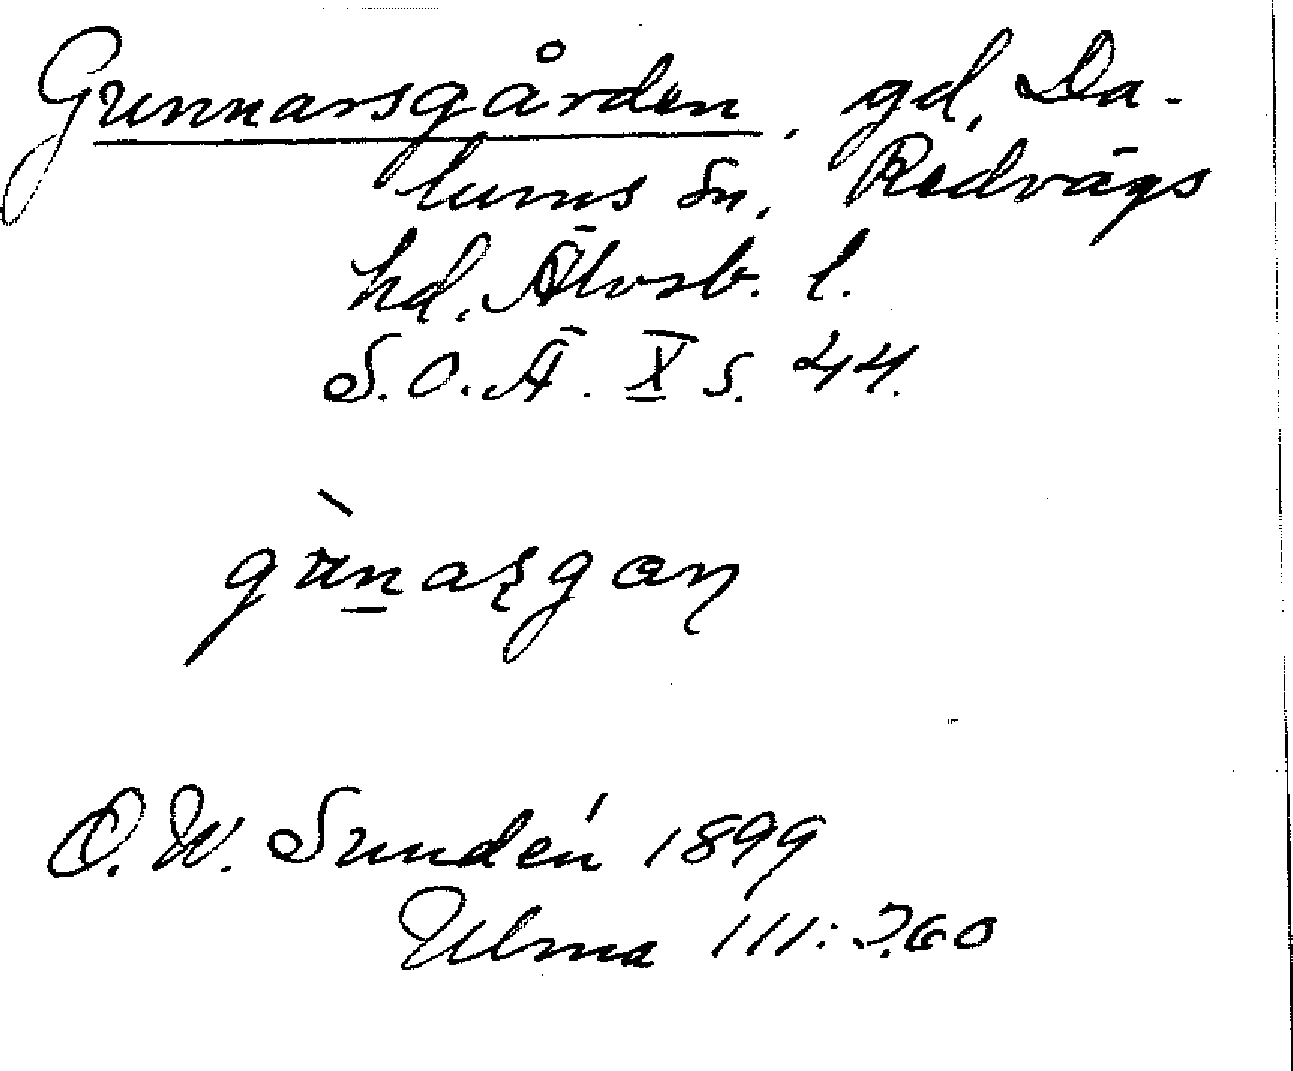 Gunnarsgården, gd, Da-
lums sn, Redvägs
hd, Älvsb. l.
S.O.Ä. X s. 44.
gùnaʂgaɳ
D. W. Sundén 1899
Ulma 111:260